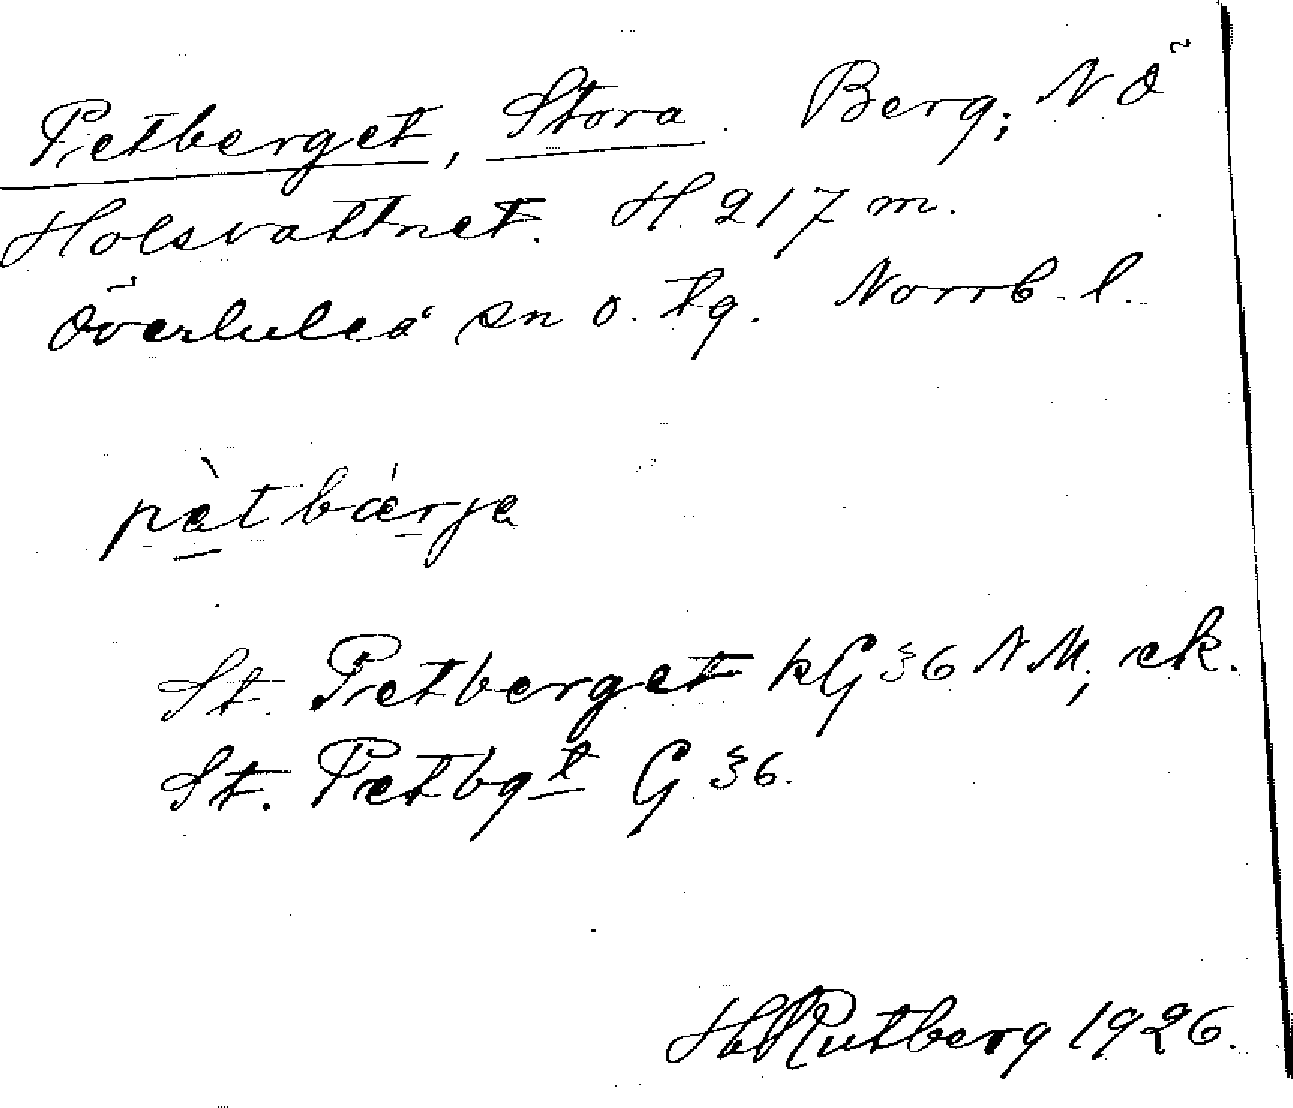 Petberget, Stora. Berg; NO
Holsvattnet. H. 217 m.
Överluleå sn o. tg. Norrb. l.
pètbä́rje
St. Petberget kG 36 NM, ek.
St. Petbgt G 36.
H Rutberg 1926.